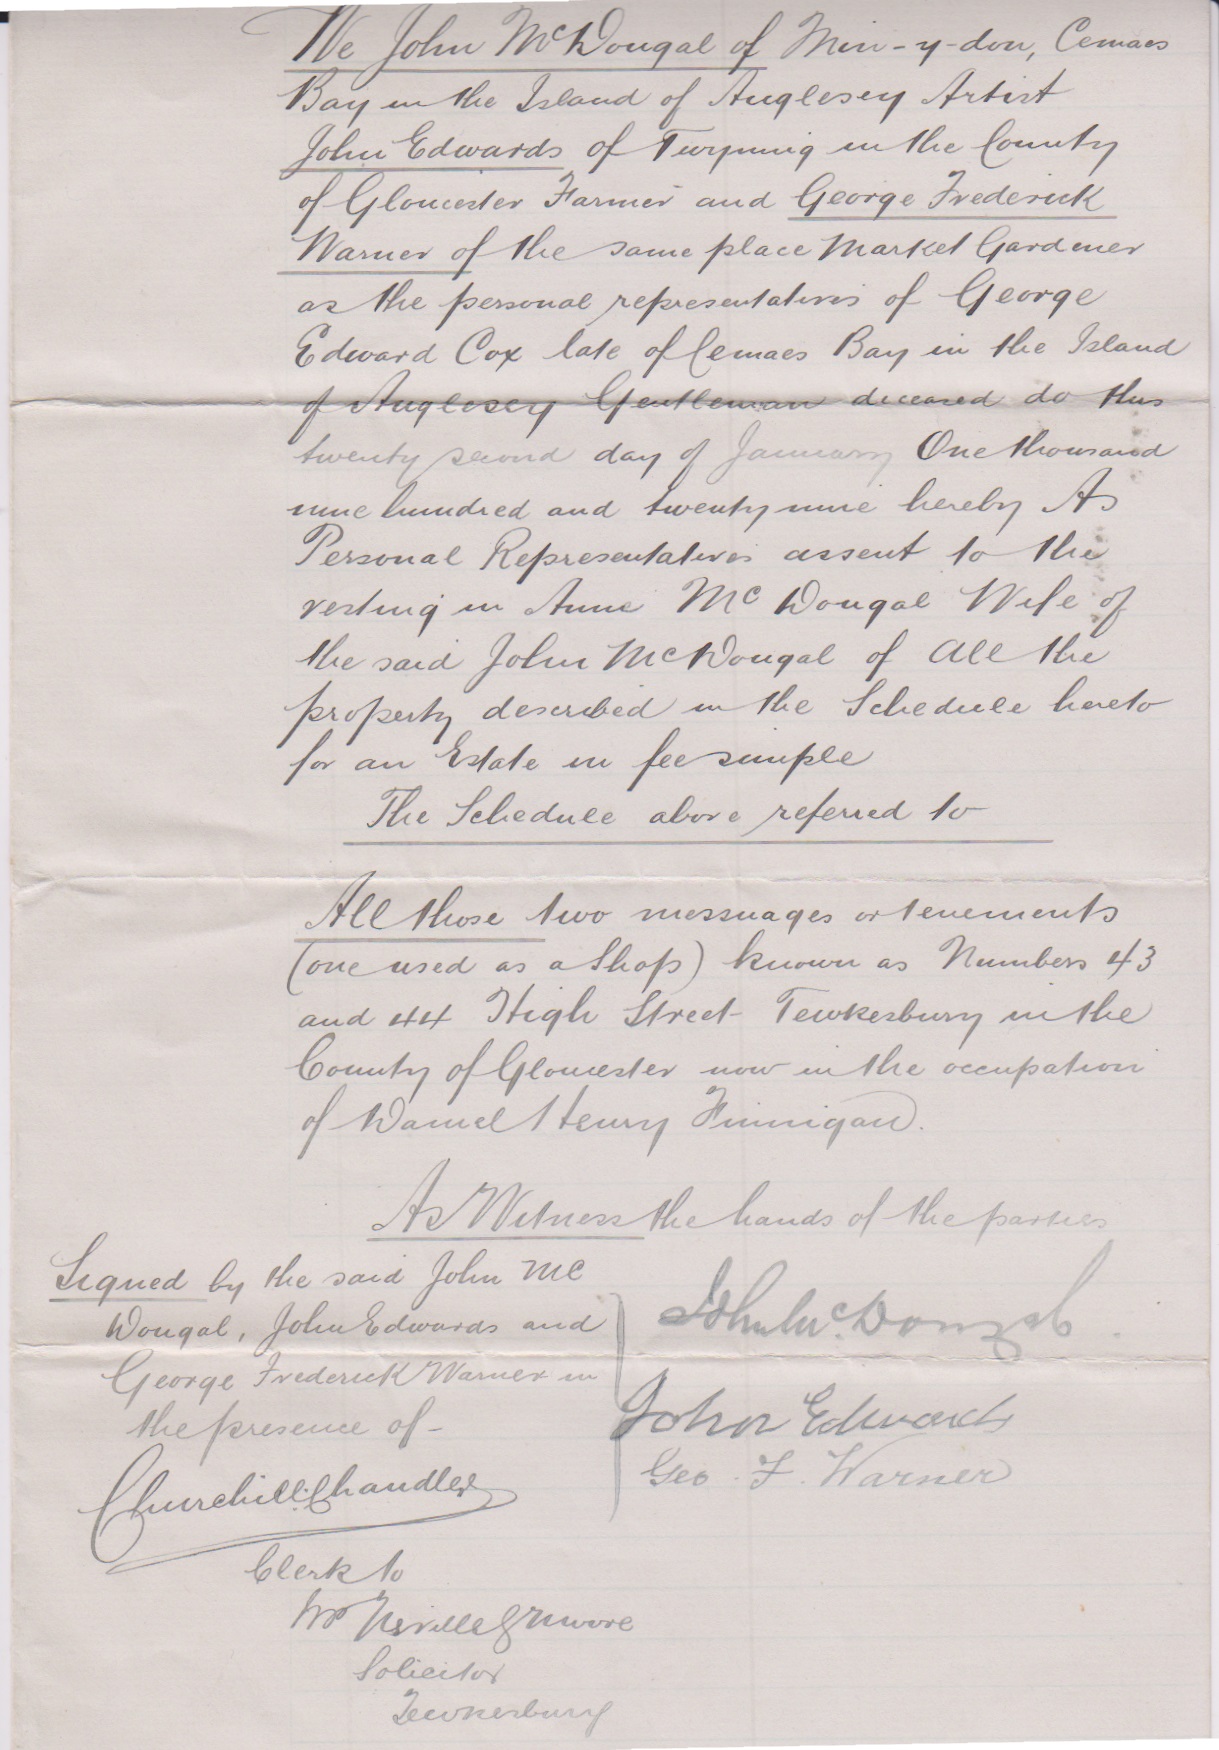 We John McDougal of Min-y-don, Cemaes
Bay in the Island of Anglesey Artist
John Edwards of Twyning in the County
of Gloucester Farmer and George Frederick
Warner of the same place Market Gardener
as the personal representatives of George
Edward Cox late of Cemaes Bay in the Island
of Anglesey Gentleman deceased do this
twenty second day of January One thousand
nine hundred and twenty nine hereby As
Personal Representatives assent to the
vesting in Anne McDougal Wife of
the said John McDougal of All the
property described in the Schedule hereto
for an Estate in fee simple
The Schedule above referred to
All those two messuages or tenements
(one used as a Shop) known as Numbers 43
and 44 High Street Tewkesbury in the
County of Gloucester now in the occupation
of Daniel Henry Finnigan.
As Witness the hands of the parties
Signed by the said John Mc
Dougal, John Edwards and
George Frederick Warner in
the presence of -
John McDougal
John Edwards
Geo. F. Warner
Churchill Chandler
Clerk to
Neville
Solicitor
Tewkesbury